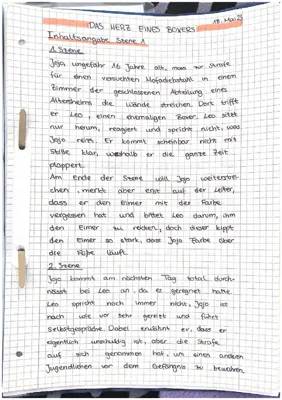 18. Mai 25
DAS HERZ EINES BOXERS
Inhaltsangabe Szene 1
1. Szene
Jojo, ungefähr 16 Jahre alt, muss zur Strafe
für einen versuchten Mofadiebstahl in einem
Zimmer der geschlossenen Abteilung eines
Altersheims die Wände streichen. Dort trifft
er Leo, einen ehemaligen Boxer. Leo sitzt
nur herum, reagiert und spricht nicht, was
Jojo reizt. Er kommt scheinbar nicht mit
Stille klar, weshalb er die ganze Zeit
plappert.
Am Ende der Szene will Jojo weiterstrei-
chen, merkt aber erst auf der Leiter,
dass er den Eimer mit der Farbe
vergessen hat und bittet Leo darum, ihm
den Eimer zu reichen, doch dieser kippt
den Eimer so stark, dass Jojo Farbe über
die Füße läuft.
2. Szene
Jojo kommt am nächsten Tag total durch-
nässt bei Leo an, da es geregnet hatte.
Leo spricht noch immer nicht, Jojo ist
nach wie vor sehr gereizt und führt
Selbstgespräche. Dabei erwähnt er, dass er
eigentlich unschuldig ist, aber die Strafe
auf sich genommen hat, um einen anderen
Jugendlichen vor dem Gefängnis zu bewahren.